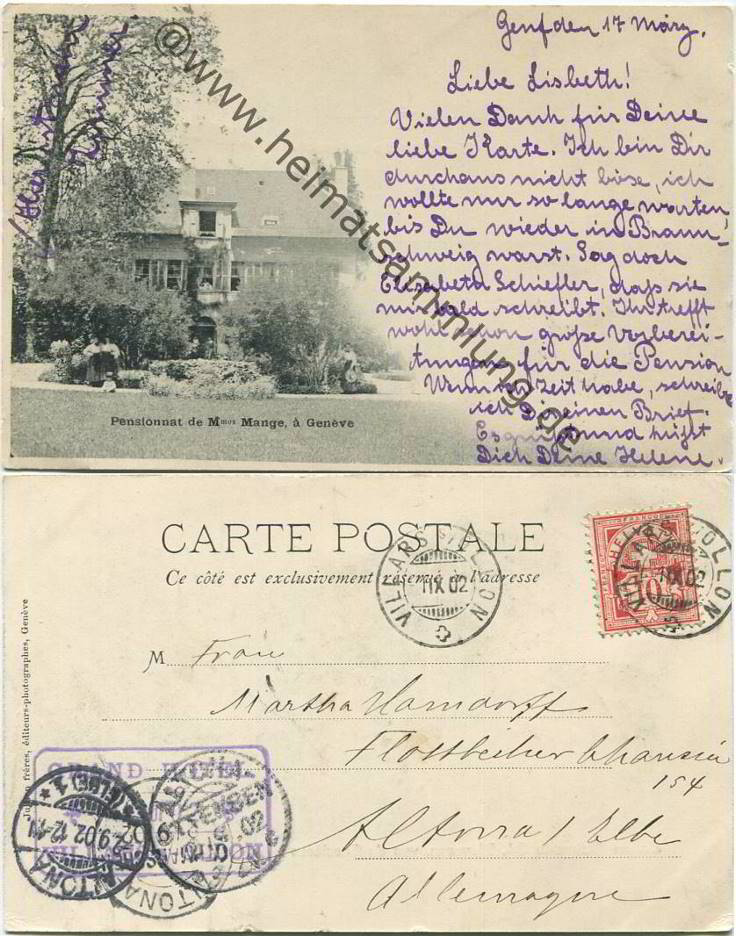 Genf den 17 März.
Liebe Lisbeth!
Vielen Dank für Deine
liebe Karte. Ich bin Dir
durchaus nicht böse, ich
wollte nur so lange warten,
bis Du wieder in Braun-
schweig warst. Sag doch
Elisabeth Schiefler, dass sie
mir bald schreibt. Ihr trefft
wohl schon große Vorberei-
tungen für die Pension
Wenn ich Zeit habe, schreibe
ich Dir einen Brief.
Es grüßt und küßt
Dich Deine Helene.
Zimmer
@www.heimatsammlung.de
Pensionnat de Mmes Mange, à Genève
CARTE POSTALE
Ce côté est exclusivement réservé à l'adresse
VILLARS s/OLLON
1 IX 02
HELVETIA
10
VILLARS s/OLLON
1 IX 02
M Frau
Martha Hamdorff
Flottbecker Chaussée
154
Altona / Elbe
Allemagne
Jullien frères, éditeurs-photographes, Genève
GRAND HOTEL
OLLON
ALTONA
* (ELBE) 1
9.02 12-1N.
ALTONA